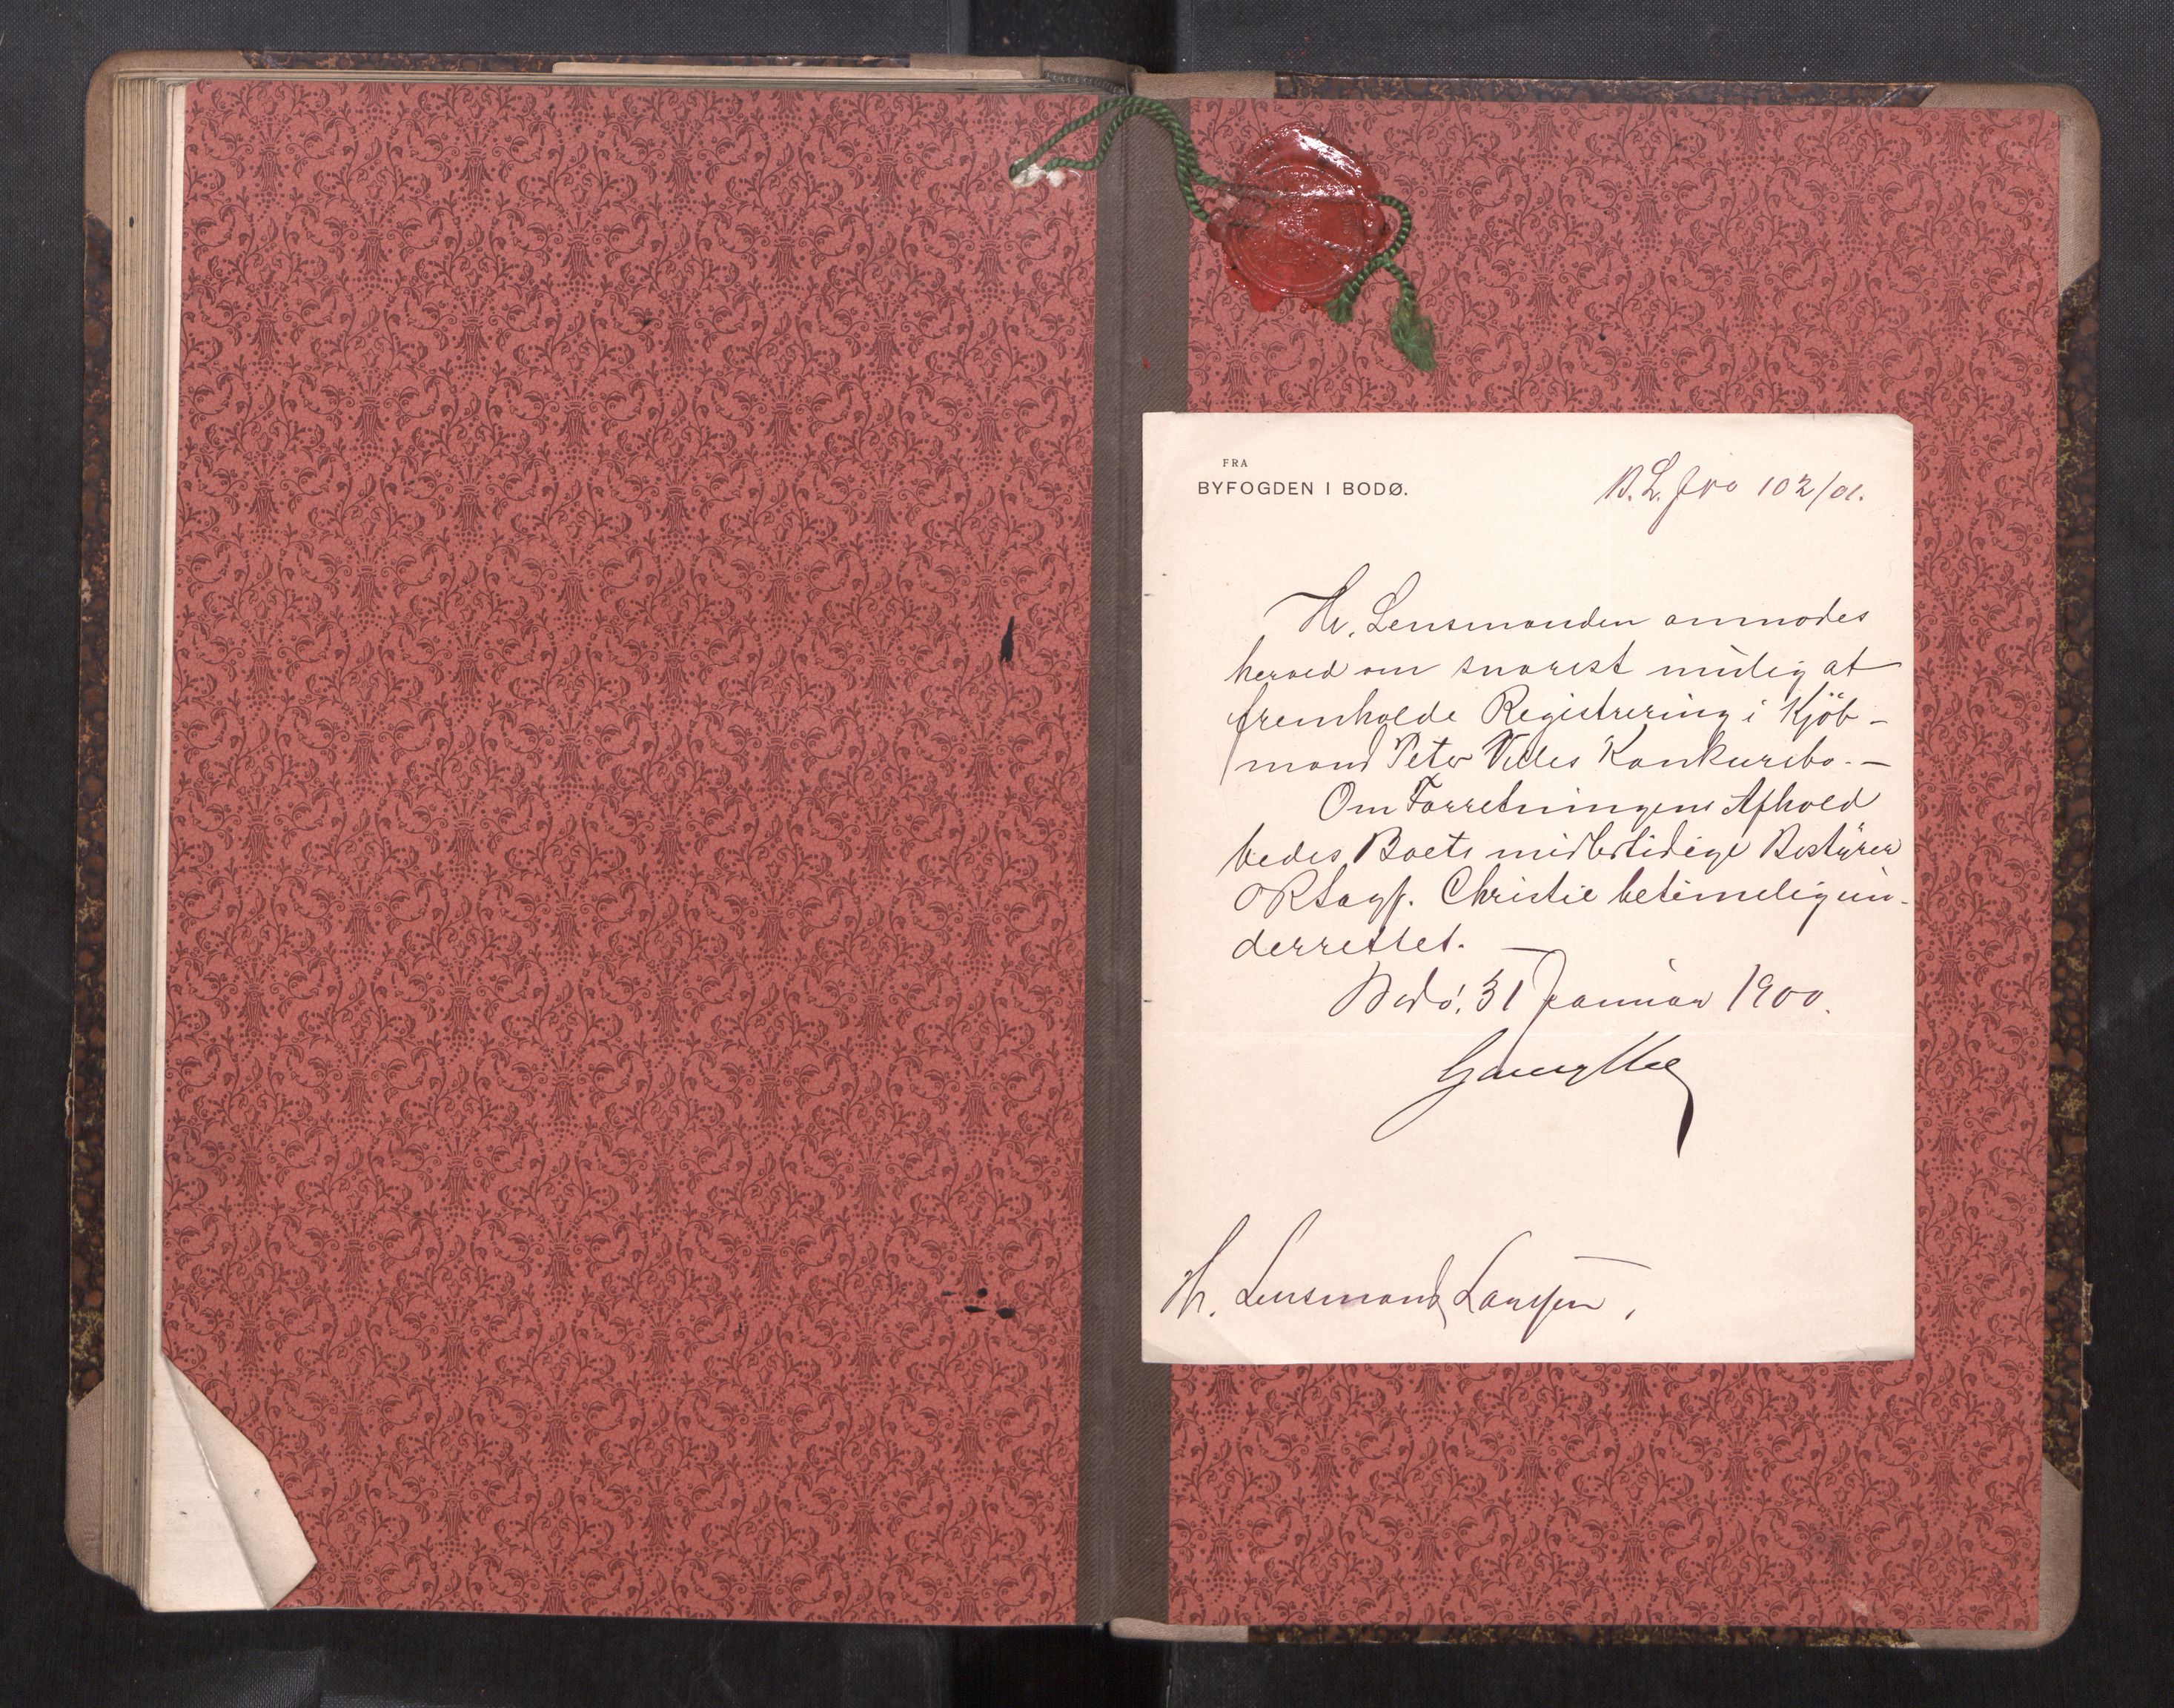 FRA
BYFOGDEN I BODØ.
B. L. Jno 102/01.
Hr. Lensmanden anmodes
herved om snarest mulig at
fremholde Registrering i Kjöb-
mand Peter Vedes Konkursbo. —
Om Forretningens Afhold
bedes Boets midlertidige Bestyrer
ORSagf. Christie betimelig un-
derrettet.
Bodø, 31 Januar 1900.
Hr. Lensmand Larssen,